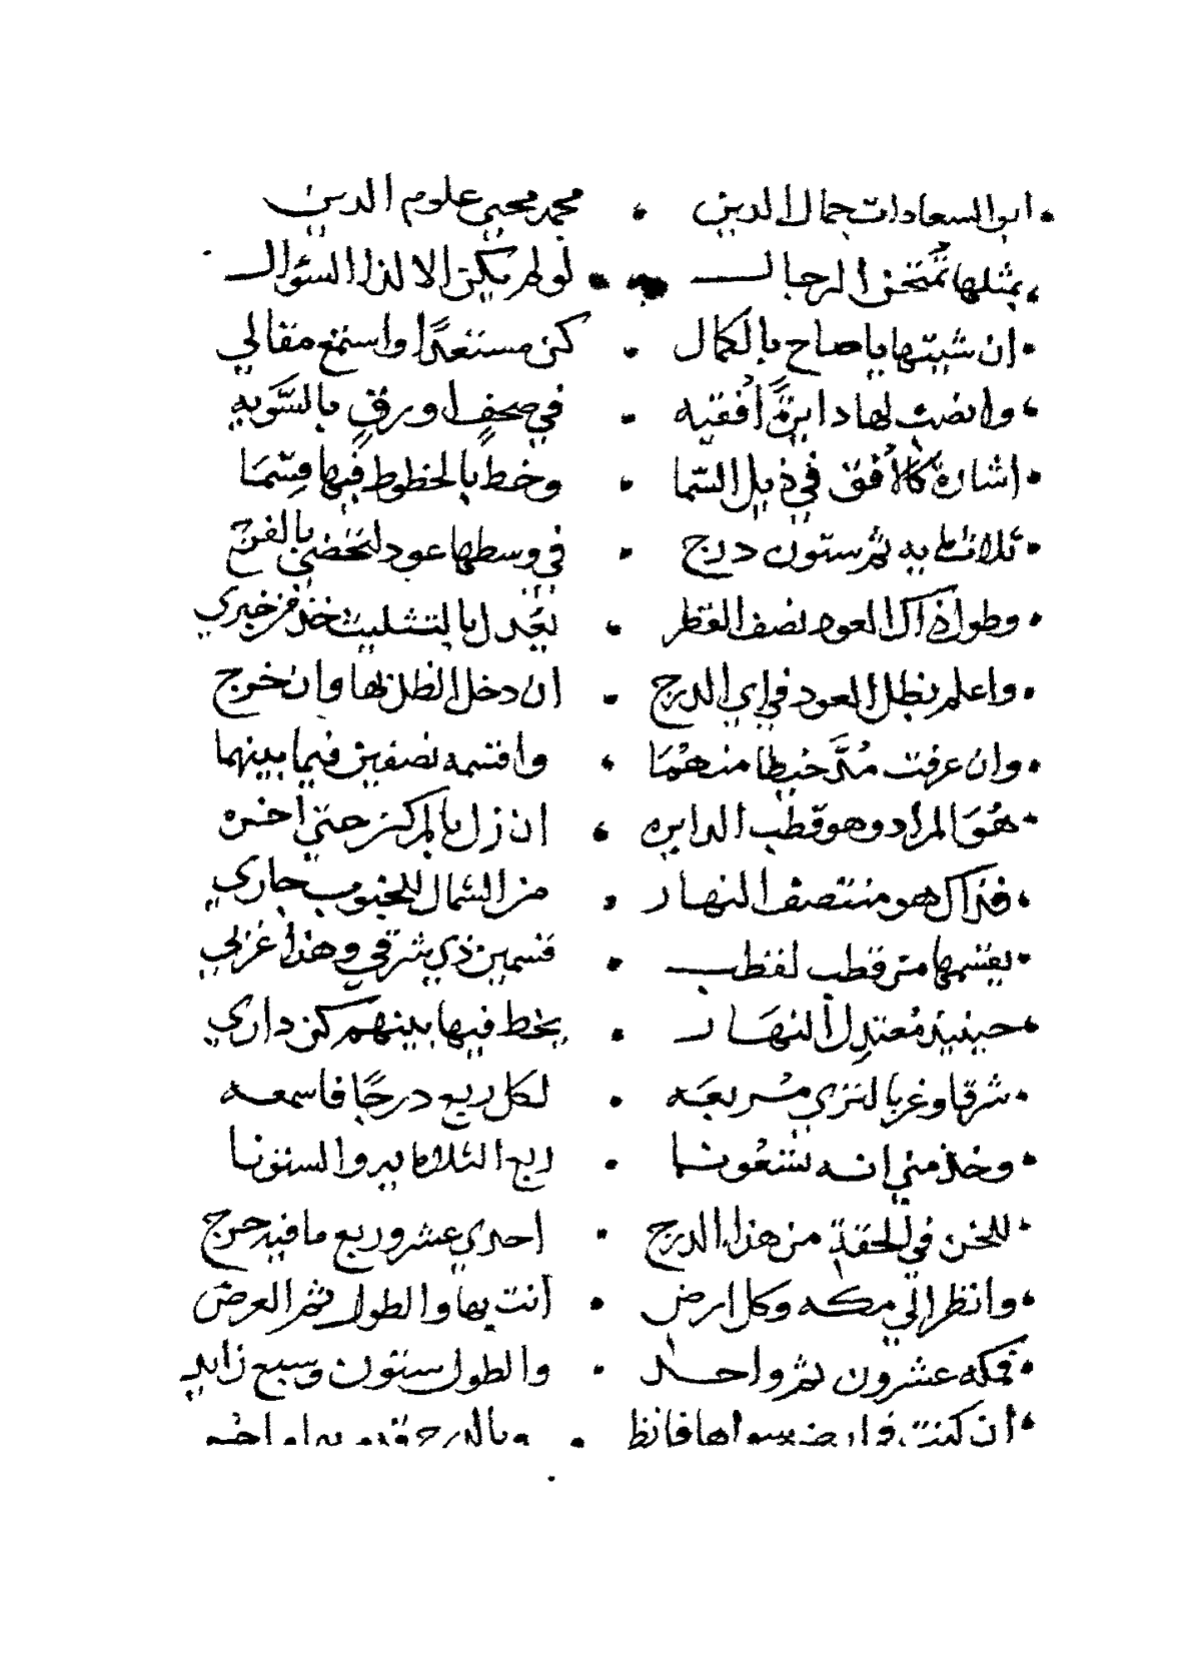 ابو السعادات جمال الدين . محمد محيي علوم الدين
بمثلها تُمتحن الرجال . لو لم يكن الا لذا السؤال
ان شيتها يا صاح بالكمال . كن مستعدًا واستمع مقالي
وانصب لها دايرةً أُفقيه . في صحفٍ او رقٍ بالسَّويه
اشارة كالأفق في ذيل السّما . وخط بالخطوط فيها قسّما
ثلاث مايه ثم ستون درج . في وسطها عود
وطول ذاك العود نصف القطر . يعدل بالتثليث خذ من خبري
واعلم بظل العود في اي الدرج . ان دخل الظل لها وان خرج
وان عرفت مُدَّ خيطا منهُمَا . واقسمه نصفين فيما بينهما
هُوَ المراد وهو قطب الدايره . ان زل بالمركز حتي اخره
فذاك هو منتصف النهار . من الشمال للجنوب جاري
يقسمها من قطب لقطب . قسمين ذي شرقي وهذا غربي
حينيذ مُعتدِل النهَار . يخط فيها بينهم كن داري
شرقا وغربا لتري مُربعَه . لكل ربع درجًا فاسمعه
وخذ مني انه تسْعُونا . ربع الثلاثمايه والستونا
من هذا الدرج . احدي عشر وربع ما فيه حرج
وانظر الي مكه وكل ارض . أنت بها والطول ثم العرض
فمكه عشرون ثم واحد . والطول ستون وسبع زايد
أن كنت في ارض سواها فانظر . وبالدرج